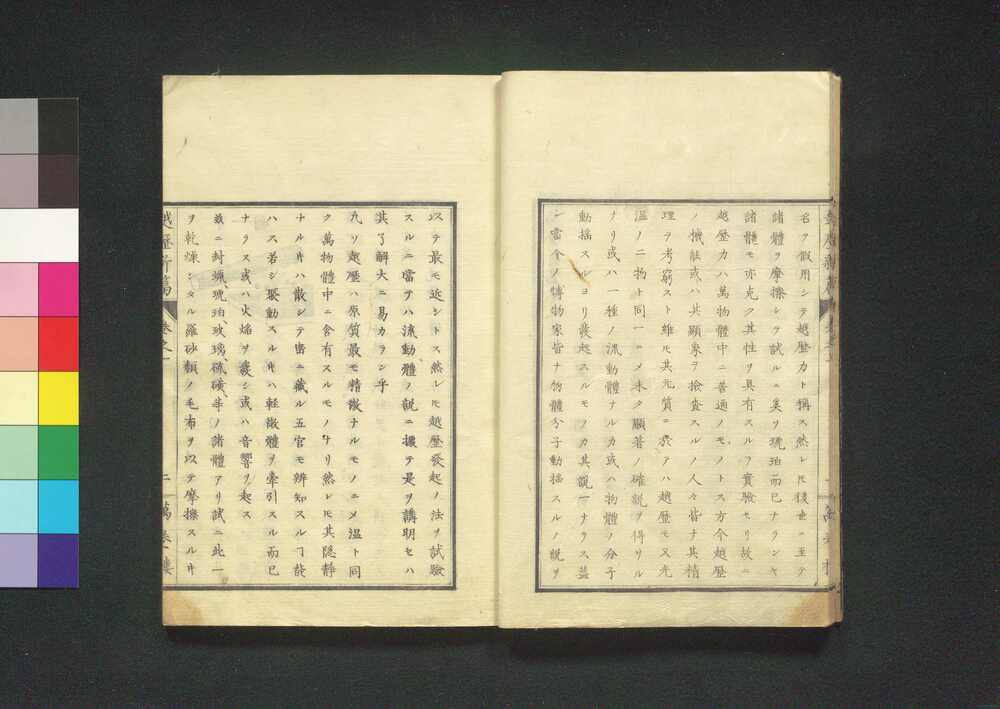 名ヲ假用シテ越歴力ト稱ス然レ𪜈後世ニ至テ
諸體ヲ摩擦シテ試ルニ奚ソ琥珀而已ナランヤ
諸體モ亦克ク其性ヲ具有スルヿ實驗セリ故ニ
越歴力ハ萬物體中ニ普通ノモノトス方今越歴
ノ機性或ハ其顯象ヲ撿査スルノ人々皆ナ其精
理ヲ考窮スト雖モ其元質ニ於テハ越歴モ又光
温ノ二物ト同一ニメ未タ顯著ノ確説ヲ得サル
ナリ或ハ一種ノ流動體ナルカ或ハ物體ノ分子
動揺スルヨリ發起スルモノカ其説一ナラス蓋
シ當今ノ博物家皆ナ物體分子動揺スルノ説ヲ
以テ最モ近シトス然レ𪜈越歴發起ノ法ヲ試驗
スルニ當テハ流動體ノ説ニ據テ是ヲ講明セハ
其了解大ニ易カラン乎
凡ソ越歴ハ原質最モ精微ナルモノニメ温ト同
ク萬物體中ニ含有スルモノナリ然レ𪜈其隠静
ナル𪜈ハ散シテ密ニ藏ル五官モ辨知スルヿ能
ハス若シ聚動スル𪜈ハ軽微體ヲ牽引スル而已
ナラス或ハ火焔ヲ發シ或ハ音響ヲ起ス
玆ニ封蝋、琥珀、玻璃、硫磺、等ノ諸體アリ試ニ此一
ヲ乾燥シタル羅砂類ノ毛布ヲ以テ摩擦スル𪜈
越歴新篇 卷之一 二 萬卷樓